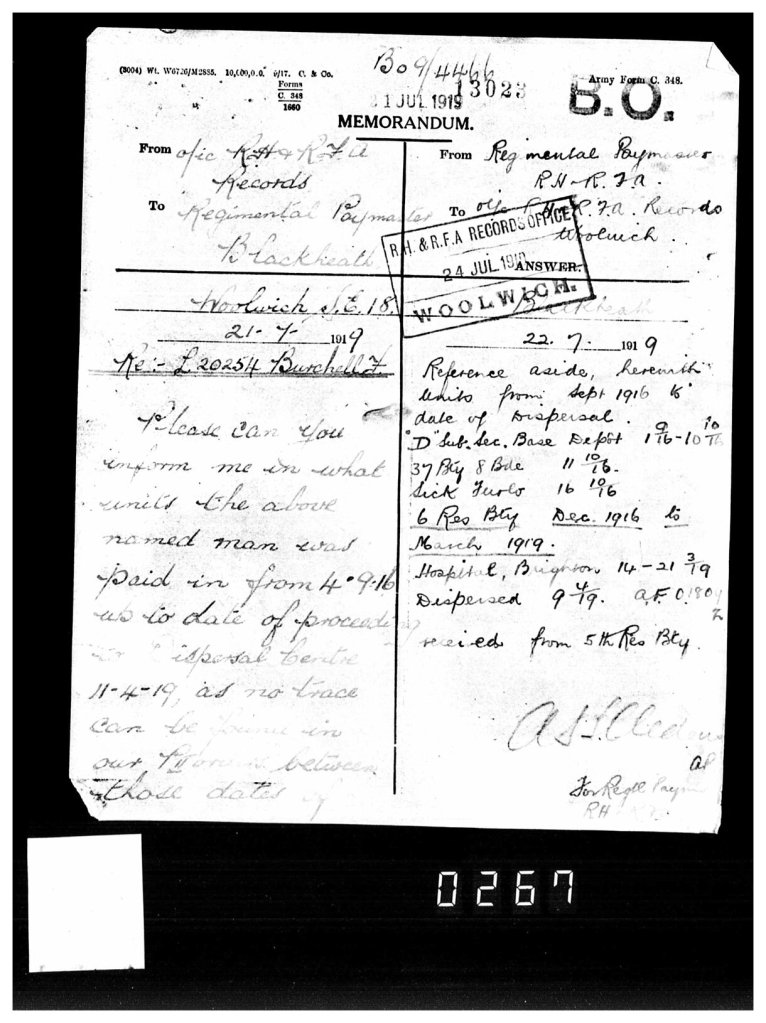 (8004) Wt. W6726/M2885. 10,000,0.0. 9/17. C. & Co.
Forms
C. 348
1660
Bo 9/4466
13023
21 JUL 1919
Army Form C. 348.
B.O.
MEMORANDUM.
From o/ic R.H & R.F.A
Records
To Regimental Paymaster
Blackheath
Woolwich S.E. 18.
21-7-1919
Re:- L 20254 Burchell F.
Please can you
inform me in what
units the above
named man was
paid in from 4.9.16
up to date of
Dispersal Centre
11-4-19, as no trace
can be found in
our between
those dates
From Regimental Paymaster
R.H - R.F.A.
To R.H - R.F.A. Records
Woolwich.
R.H. & R.F.A RECORDS OFFICE
24 JUL 1919
WOOLWICH.
ANSWER.
Blackheath
22. 7. 1919
Reference aside, herewith
units from Sept 1916 to
date of Dispersal.
"D" Sub. Sec. Base Depôt 1 9/16 - 10 10/16
37 Bty 8 Bde 11 10/16.
Sick Furlo 16 10/16
6 Res Bty Dec. 1916 to
March 1919.
Hospital, Brighton 14-21 3/19
Dispersed 9 4/19. A.F.
received from 5th Res Bty.
For Regtl Paym
RH
0267